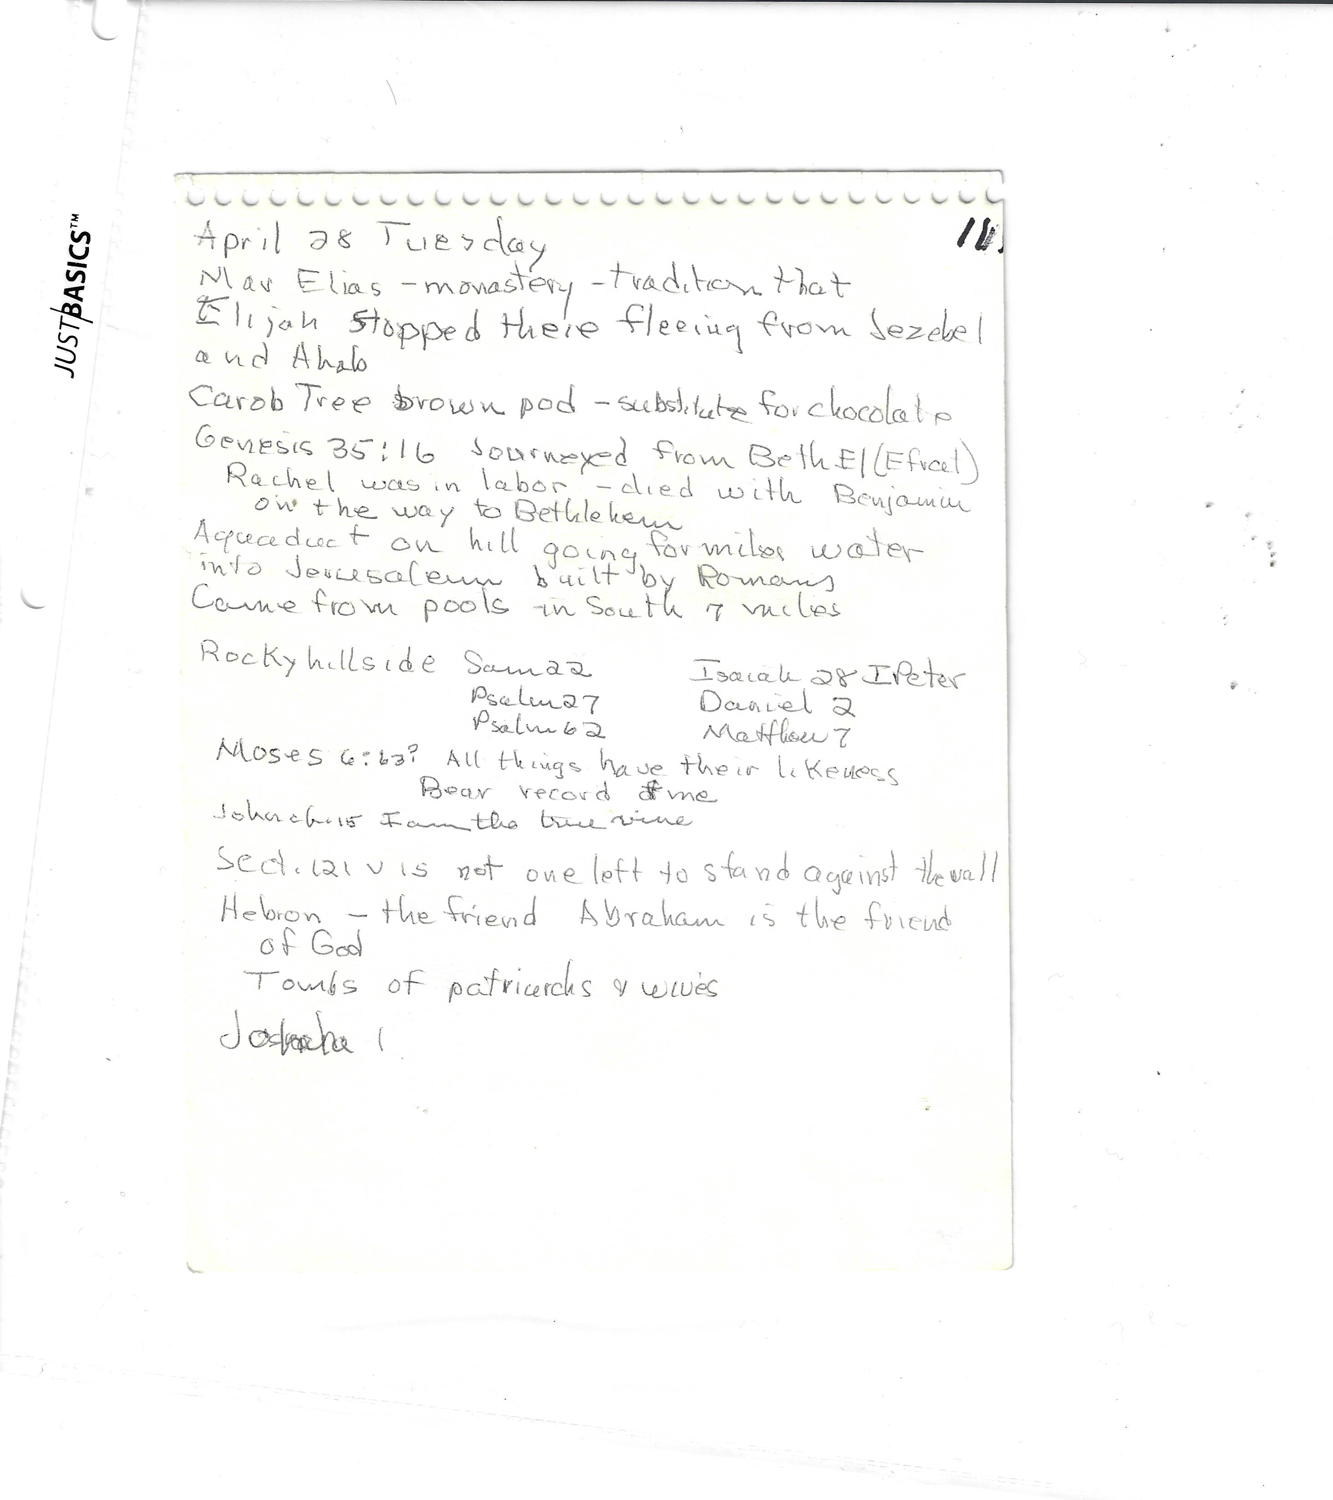 JUST/BASICS™
April 28 Tuesday
Mar Elias - monastery - tradition that
Elijah stopped there fleeing from Jezebel
and Ahab
Carob Tree brown pod - substitute for chocolate
Genesis 35:16 Journeyed from Beth El (Efrael)
Rachel was in labor - died with Benjamin
on the way to Bethlehem
Aquaduct on hill going for miles water
into Jerusalem built by Romans
Came from pools in South 7 miles
Rocky hillside Sam 22 Isaiah 28 I Peter
Psalm 27 Daniel 2
Psalm 62 Matthew 7
Moses 6:63? All things have their likeness
Bear record of me
John ch. 15 I am the true vine
Sect. 121 v 15 not one left to stand against the wall
Hebron - the friend Abraham is the friend
of God
Tombs of patriarchs & wives